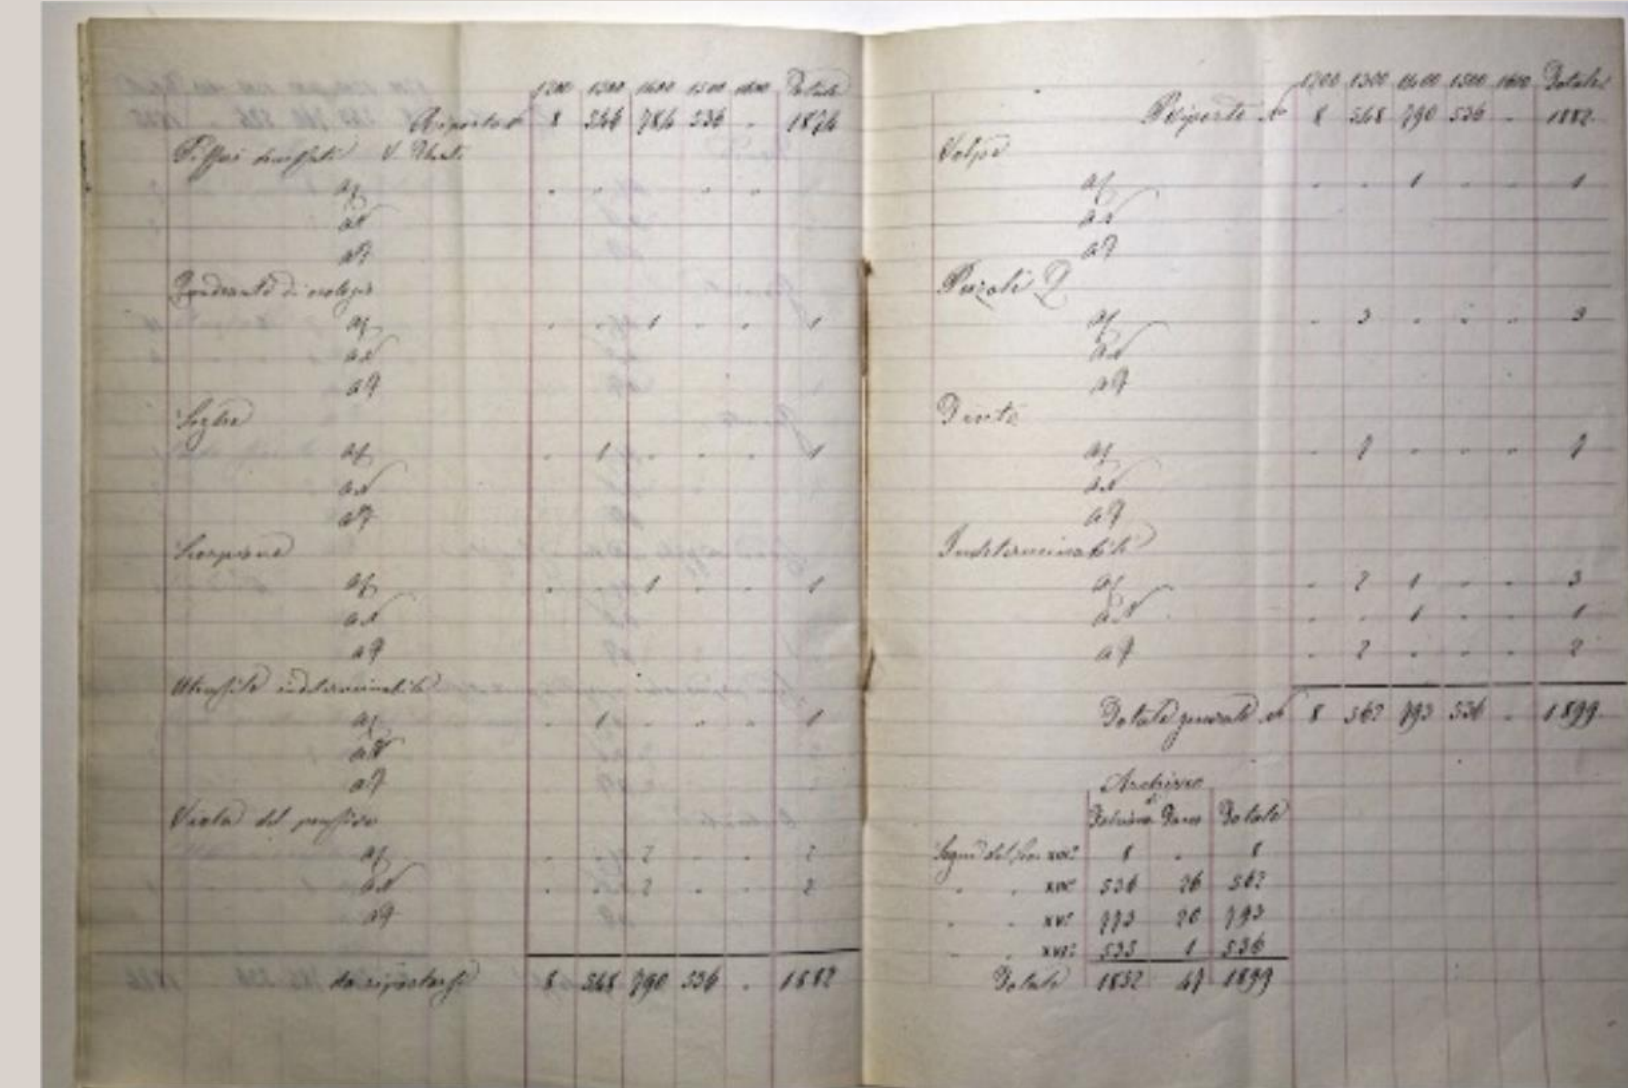 1200 1300 1400 1500 1600 Totale
Riporto N 8 546 784 536 - 1874
V. Flauti
af - - - -
ax
a9
Quadrante di orologio
af - - 1 - - 1
ax
a9
af - 1 - - - 1
ax
a9
Scorpione
af - - 1 - - 1
ax
a9
Utensile indeterminabile
af - 1 - - - 1
ax
a9
Viola del pensiero
af - - 2 - - 2
ax - - 2 - - 2
a9
da riportarsi 8 548 790 536 - 1882
1200 1300 1400 1500 1600 Totale
Riporto N 8 548 790 536 - 1882
Volpe
af - - 1 - - 1
ax
a9
af - 3 - - - 3
ax
a9
af - 7 - - - 7
ax
a9
Indeterminabili
af - 2 1 - - 3
ax - - 1 - - 1
a9 - 2 - - - 2
Totale generale N 8 562 793 536 - 1899
Archivio
di
Fabriano Totale
Segni del sec. XIII° 8 - 8
" " XIV° 536 26 562
" " XV° 773 20 793
" " XVI° 535 1 536
Totale 1852 47 1899